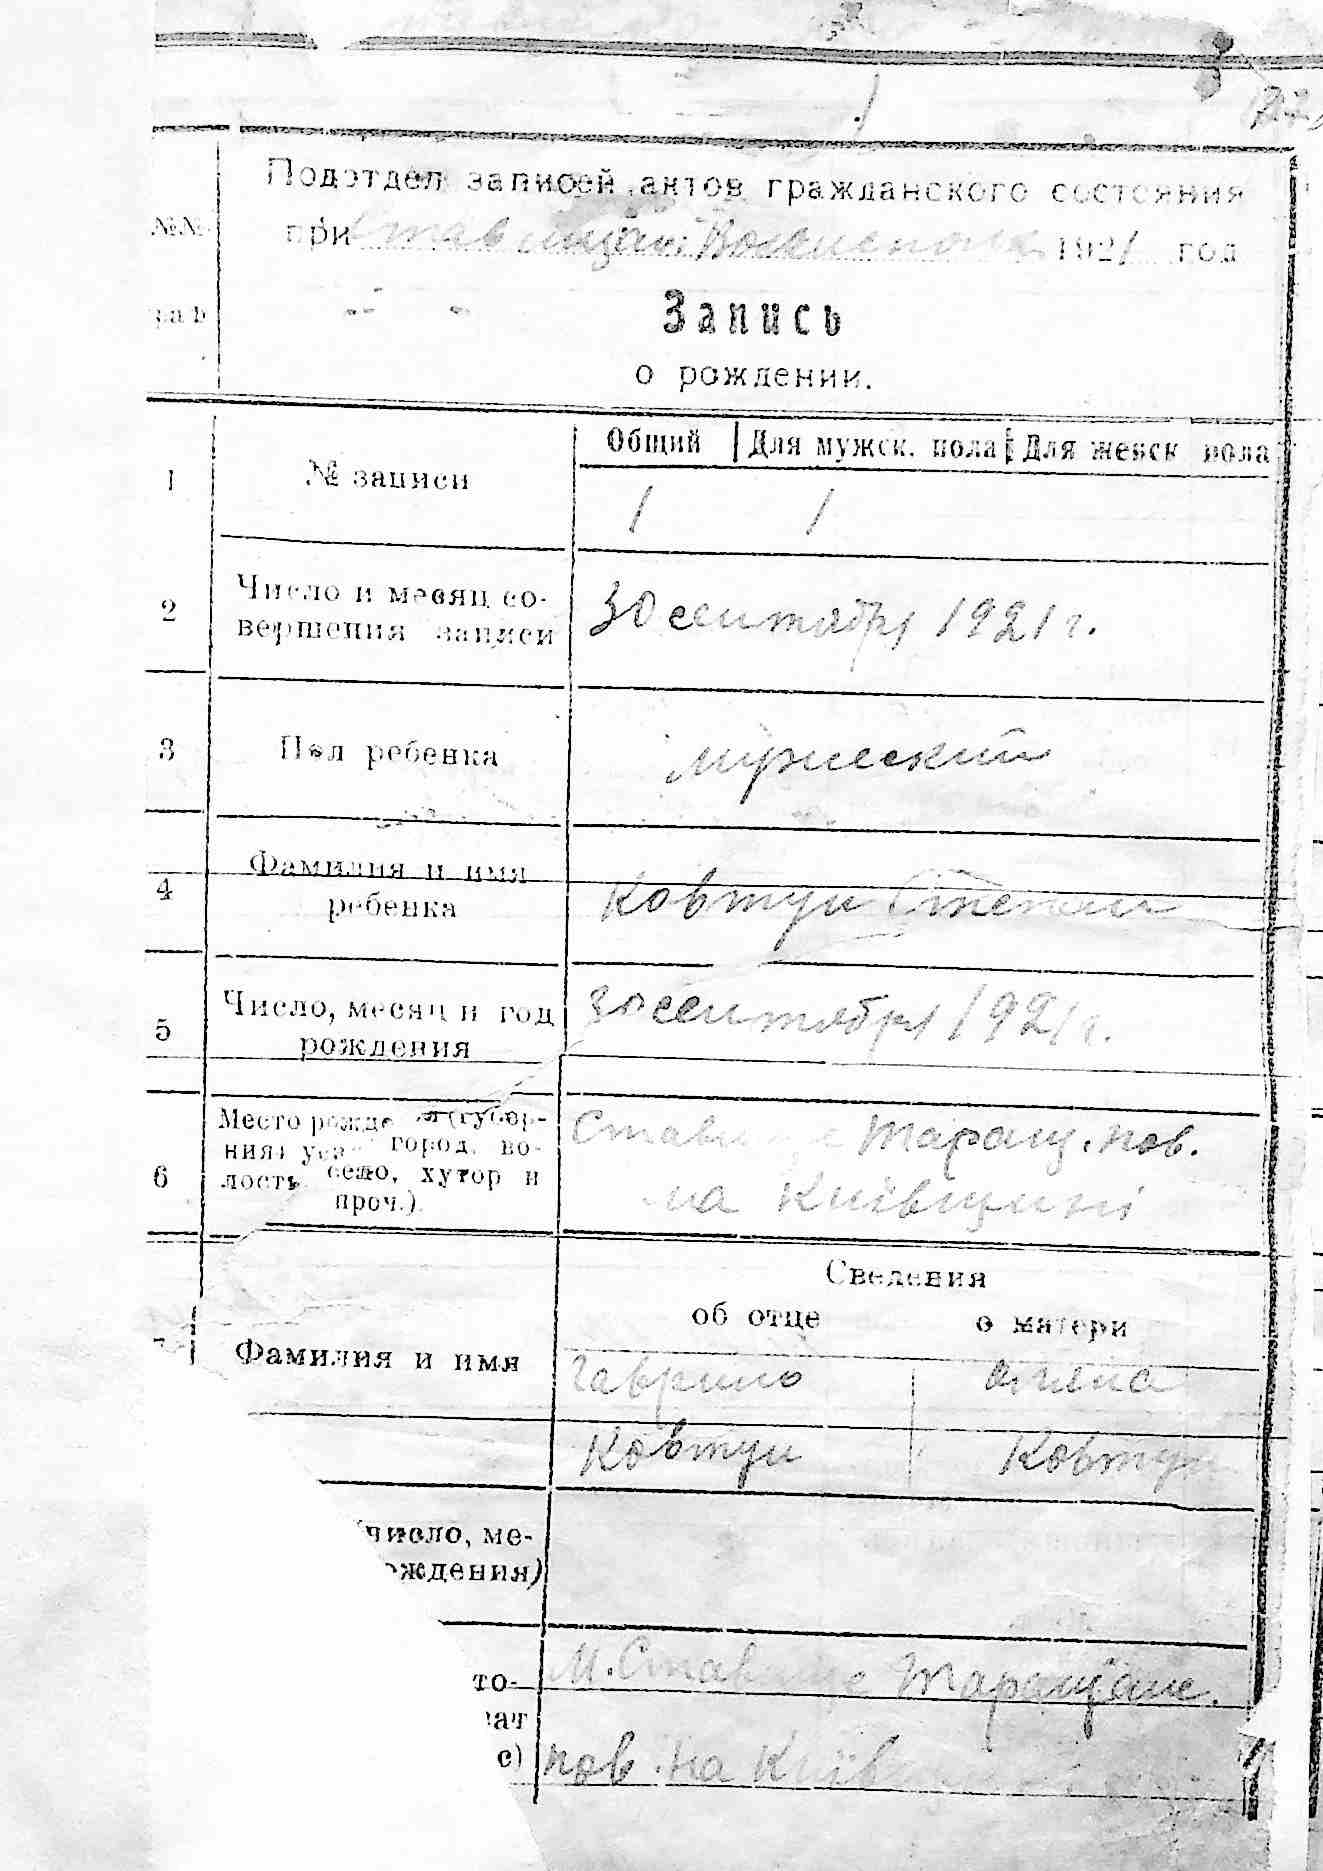 Подотдел записей актов гражданского состояния
№№ при 1921 год
Запись
о рождении.
Общий Для мужск. пола Для женск пола
1 № записи 1 1
2 Число и месяц со-
вершения записи 30 сентября 1921 г.
3 Пол ребенка мужеский
4 Фамилия и имя
ребенка Ковтун Степан
5 Число, месяц и год
рождения 30 сентября 1921 г.
6 Место рожде (губер-
ния, город, во-
лость село, хутор и
проч.).
Ставище Таращ. пов.
на Київщині
Сведения
об отце о матери
Фамилия и имя Гаврило
Ковтун Ковтун
число, ме-
ождения)
то-
ат
с)
М. Ставище Таращан.
пов. на